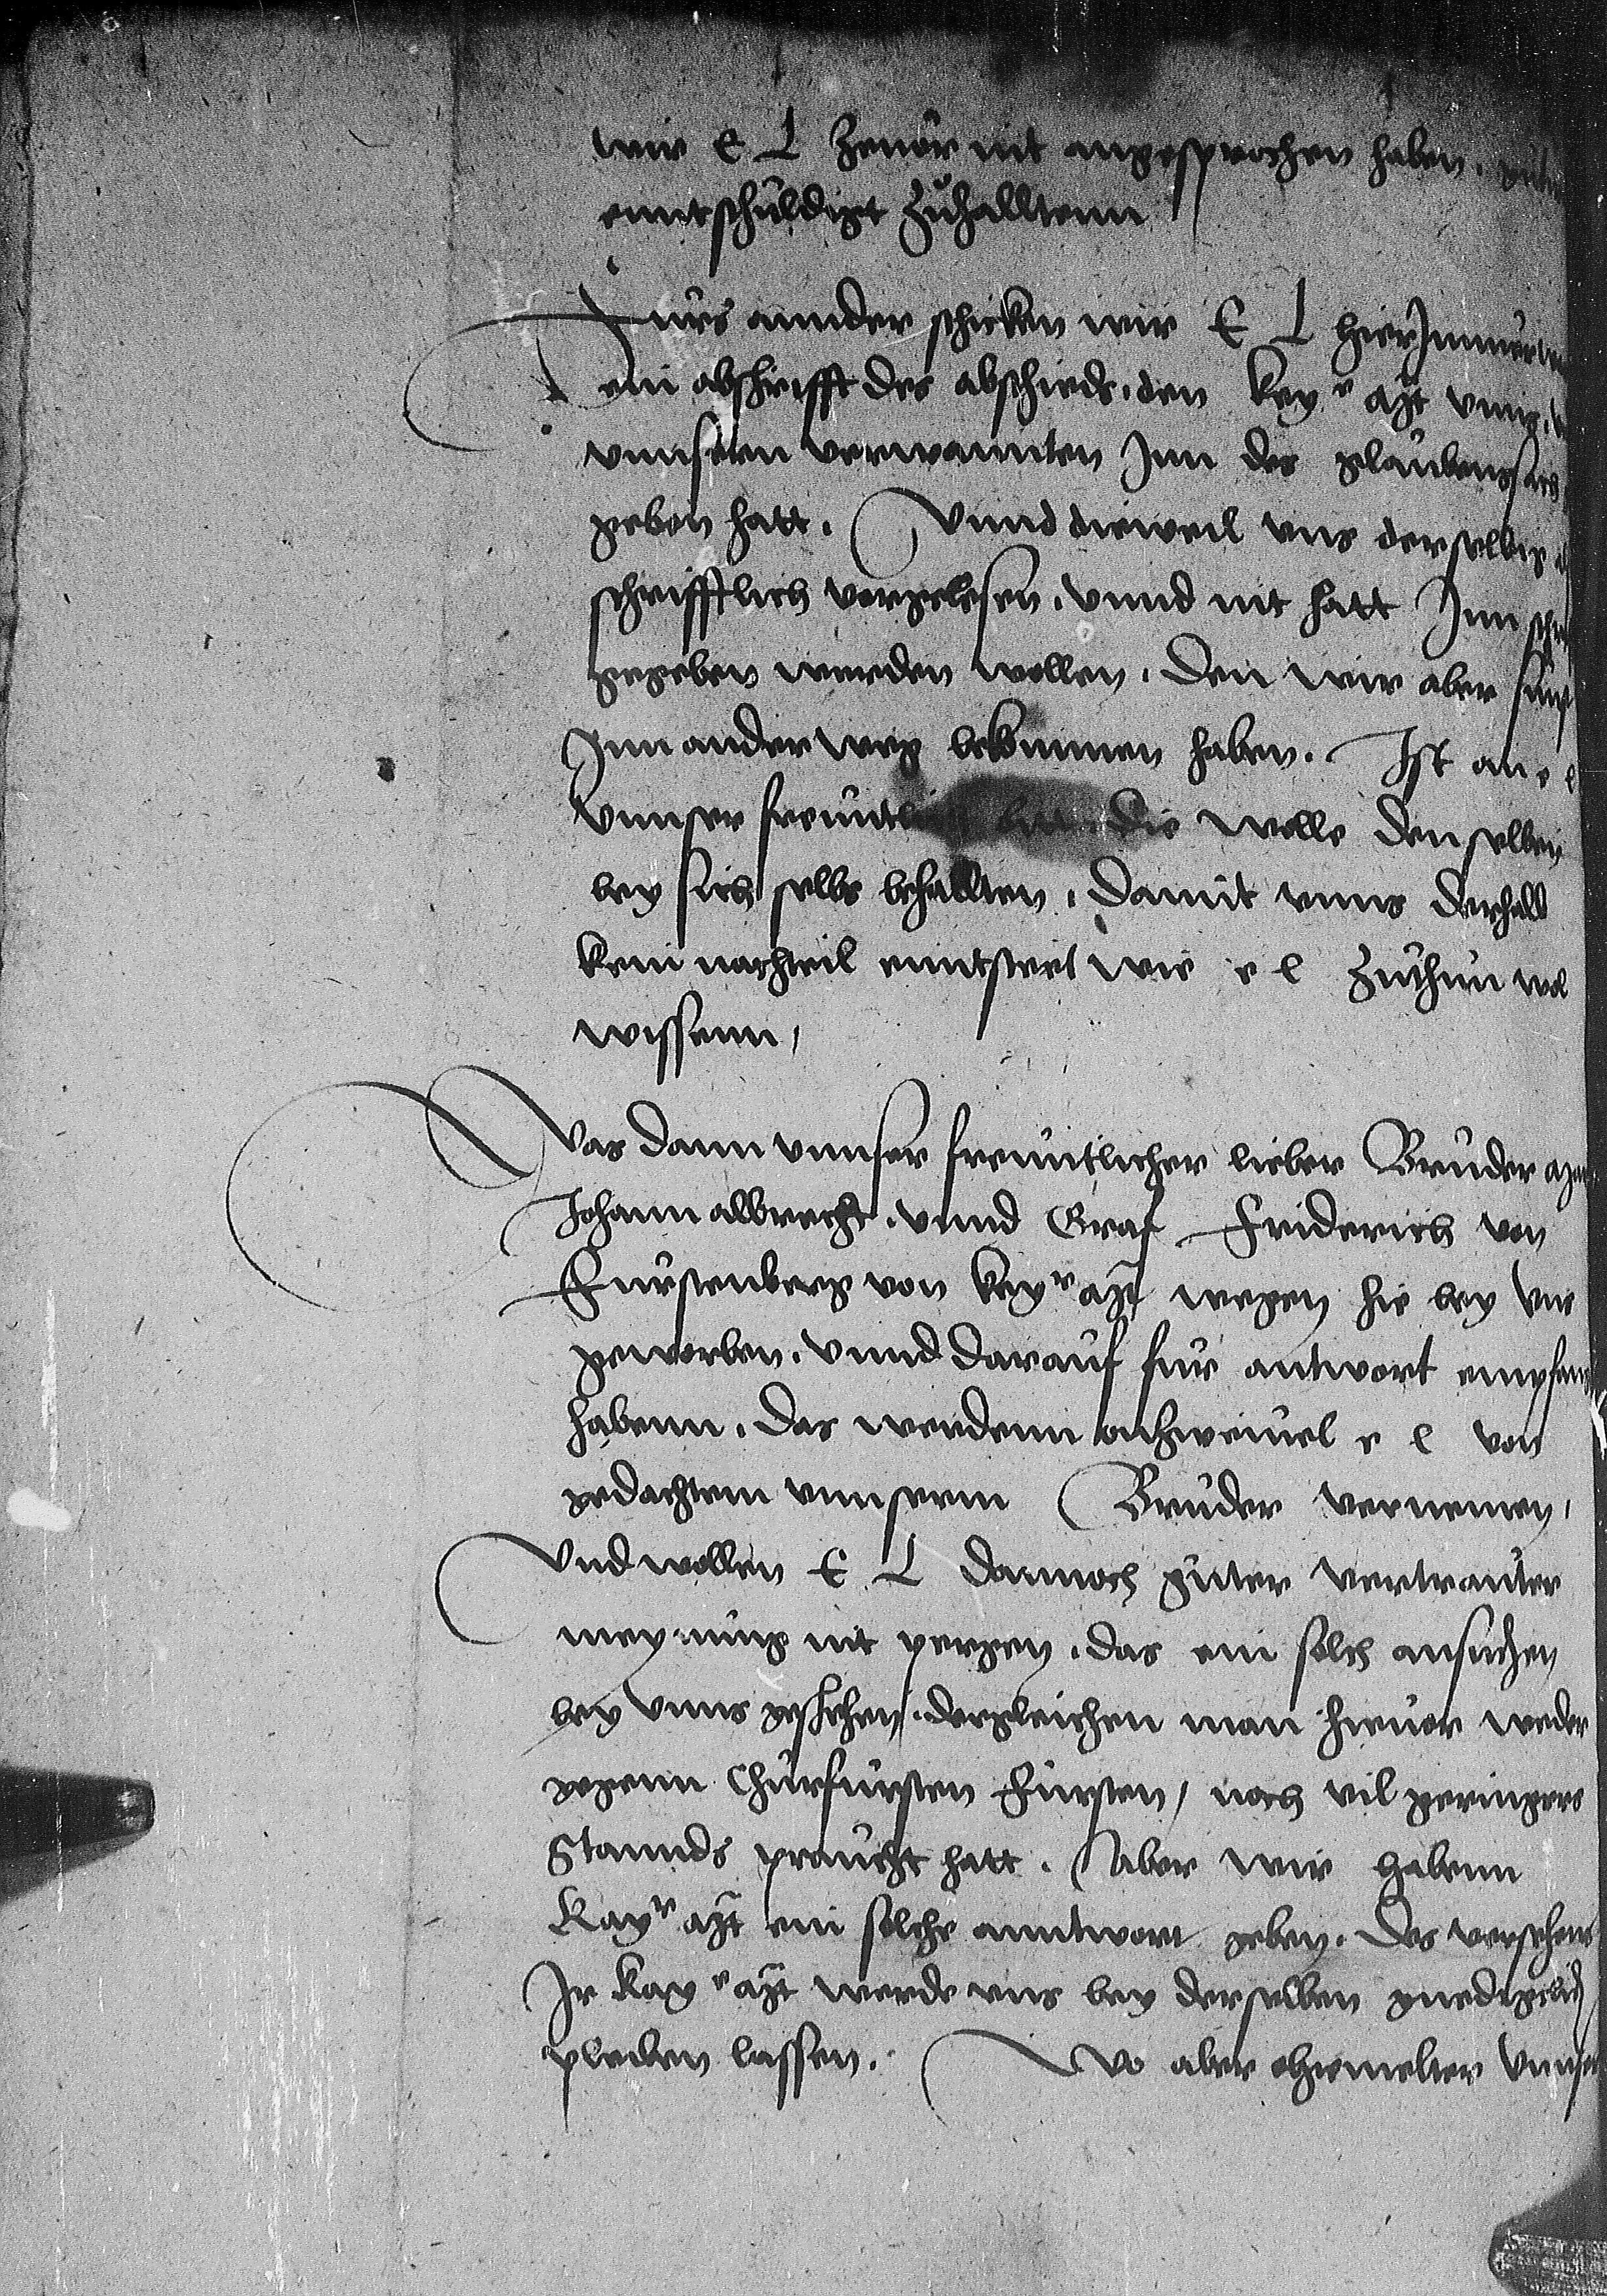 wir E L zuuor nit angesprochen haben.
enntschuldigt zuhalltenn
Furs annder schicken wir E L hierJnn
ein abschrifft des abschieds. den key r Mt vnns.
vnnsern verwannten Jnn des glaubenssach
geben hatt. Vnnd dieweil vns derselbig
schrifftlich vorgelesen. vnnd nit hatt Jnn
gegeben werden wollen. den wir aber sunst
Jnn ander weg bekommen haben. Ist an e l
vnnser freuntlich bitt. die wolle denselben
bey sich selbs behallten. damit vnns derhalb
kein nachteil enntsteet wie e l zuthun wol
wissenn,
Was dann vnnser freuntlicher lieber Bruder
Johann albrecht. vnnd Graf Friderich von
Furstenberg von key r Mt wegen hie bey vns
geworben. vnnd darauf fur antwort empfan
habenn. das werdenn onzweiuel e l von
gedachtem vnnserm Bruder vernemen,
Vnd wollen E L dannoch guter vertrauter
meynung nit pergen. das ein solch ansuchen
bey vnns geschehen. dergleichen man hieuor weder
gegenn Churfursten Fursten, noch vil geringers
Stannds praucht hatt. Aber wir habenn
Kay r Mt ein solche anntwort geben. des versehens
Ir Kay r Mt werde vns bey derselben gnedigclich
pleiben lassen. Wo aber obgemelter vnnser